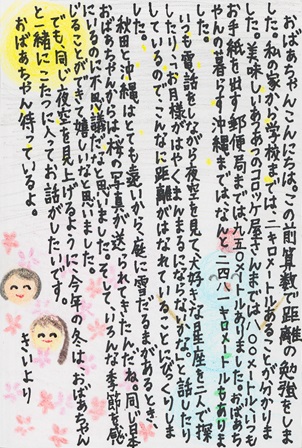 おばあちゃんこんにちは。この前算数で距離の勉強をしま
した。私の家から学校までは、二キロメートルあることが分かりま
した。美味しいあうあうのコロッケ屋さんまでは一〇〇メートル、いつも
お手紙を出す郵便局までは、九五〇メートルありました。おばあち
ゃんの暮らす沖縄まではなんと、二四八一キロメートルもありま
した。
いつも電話をしながら夜空を見て、大好きな星座を二人で探
したり、「お月様がはやくまんまるにならないかな。」と話したり
しているので、こんなに距離がはなれていることにびっくりしま
した。
秋田と沖縄はとても遠いから、庭に雪だるまがあるとき、
おばあちゃんからは桜の写真が送られてきたんだね。同じ日本
にいるのに不思議だなと思いました。そして、いろんな季節を感
じることができて嬉しいなと思いました。
でも、同じ夜空を見上げるように、今年の冬は、おばあちゃん
と一緒にこたつに入ってお話がしたいです。
おばあちゃん待っているよ。
きいより